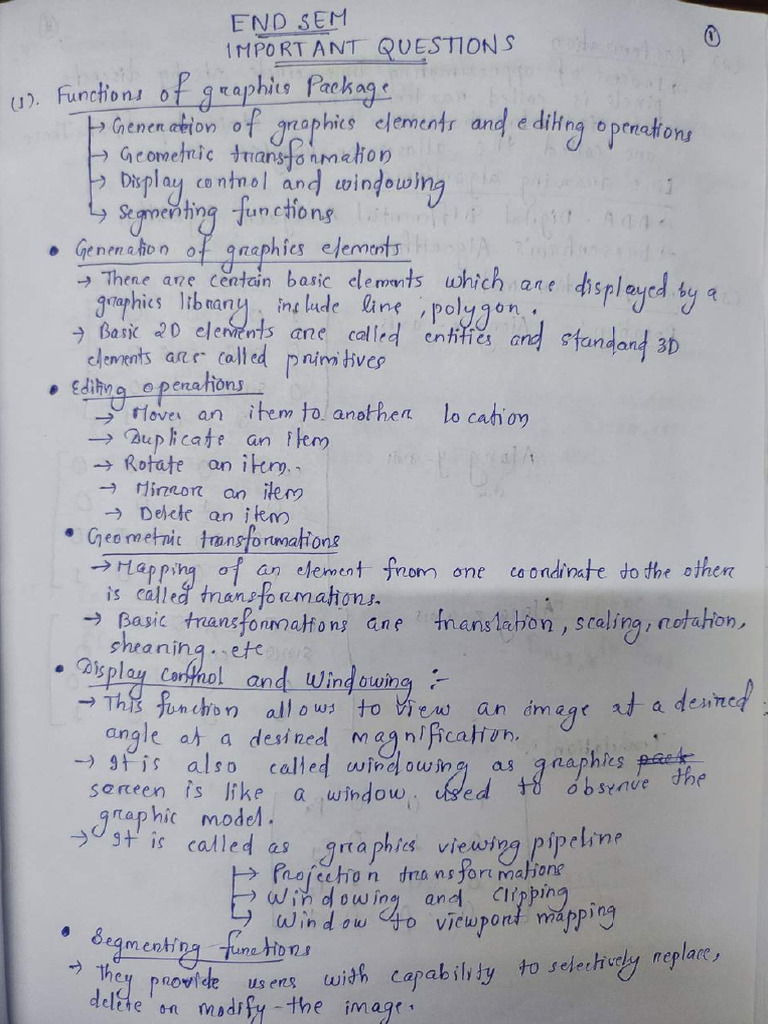 END SEM
IMPORTANT QUESTIONS
1
(1). Functions of graphics Package
→ Generation of graphics elements and editing operations
→ Geometric transformation
→ Display control and windowing
→ Segmenting functions
• Generation of graphics elements
→ There are certain basic elements which are displayed by a
graphics library. include line, polygon.
→ Basic 2D elements are called entities and standard 3D
elements are called primitives
• Editing operations
→ Moves an item to another location
→ Duplicate an item
→ Rotate an item.
→ Mirror an item
→ Delete an item
• Geometric transformations
→ Mapping of an element from one coordinate to the other
is called transformations.
→ Basic transformations are translation, scaling, rotation,
shearing. etc
• Display control and Windowing :-
→ This function allows to view an image at a desired
angle at a desired magnification.
→ It is also called windowing as graphics
screen is like a window used to observe the
graphic model.
→ It is called as graphics viewing pipeline
→ Projection transformations
→ Windowing and Clipping
→ Window to viewport mapping
• Segmenting functions
→ They provide users with capability to selectively replace,
delete or modify the image.